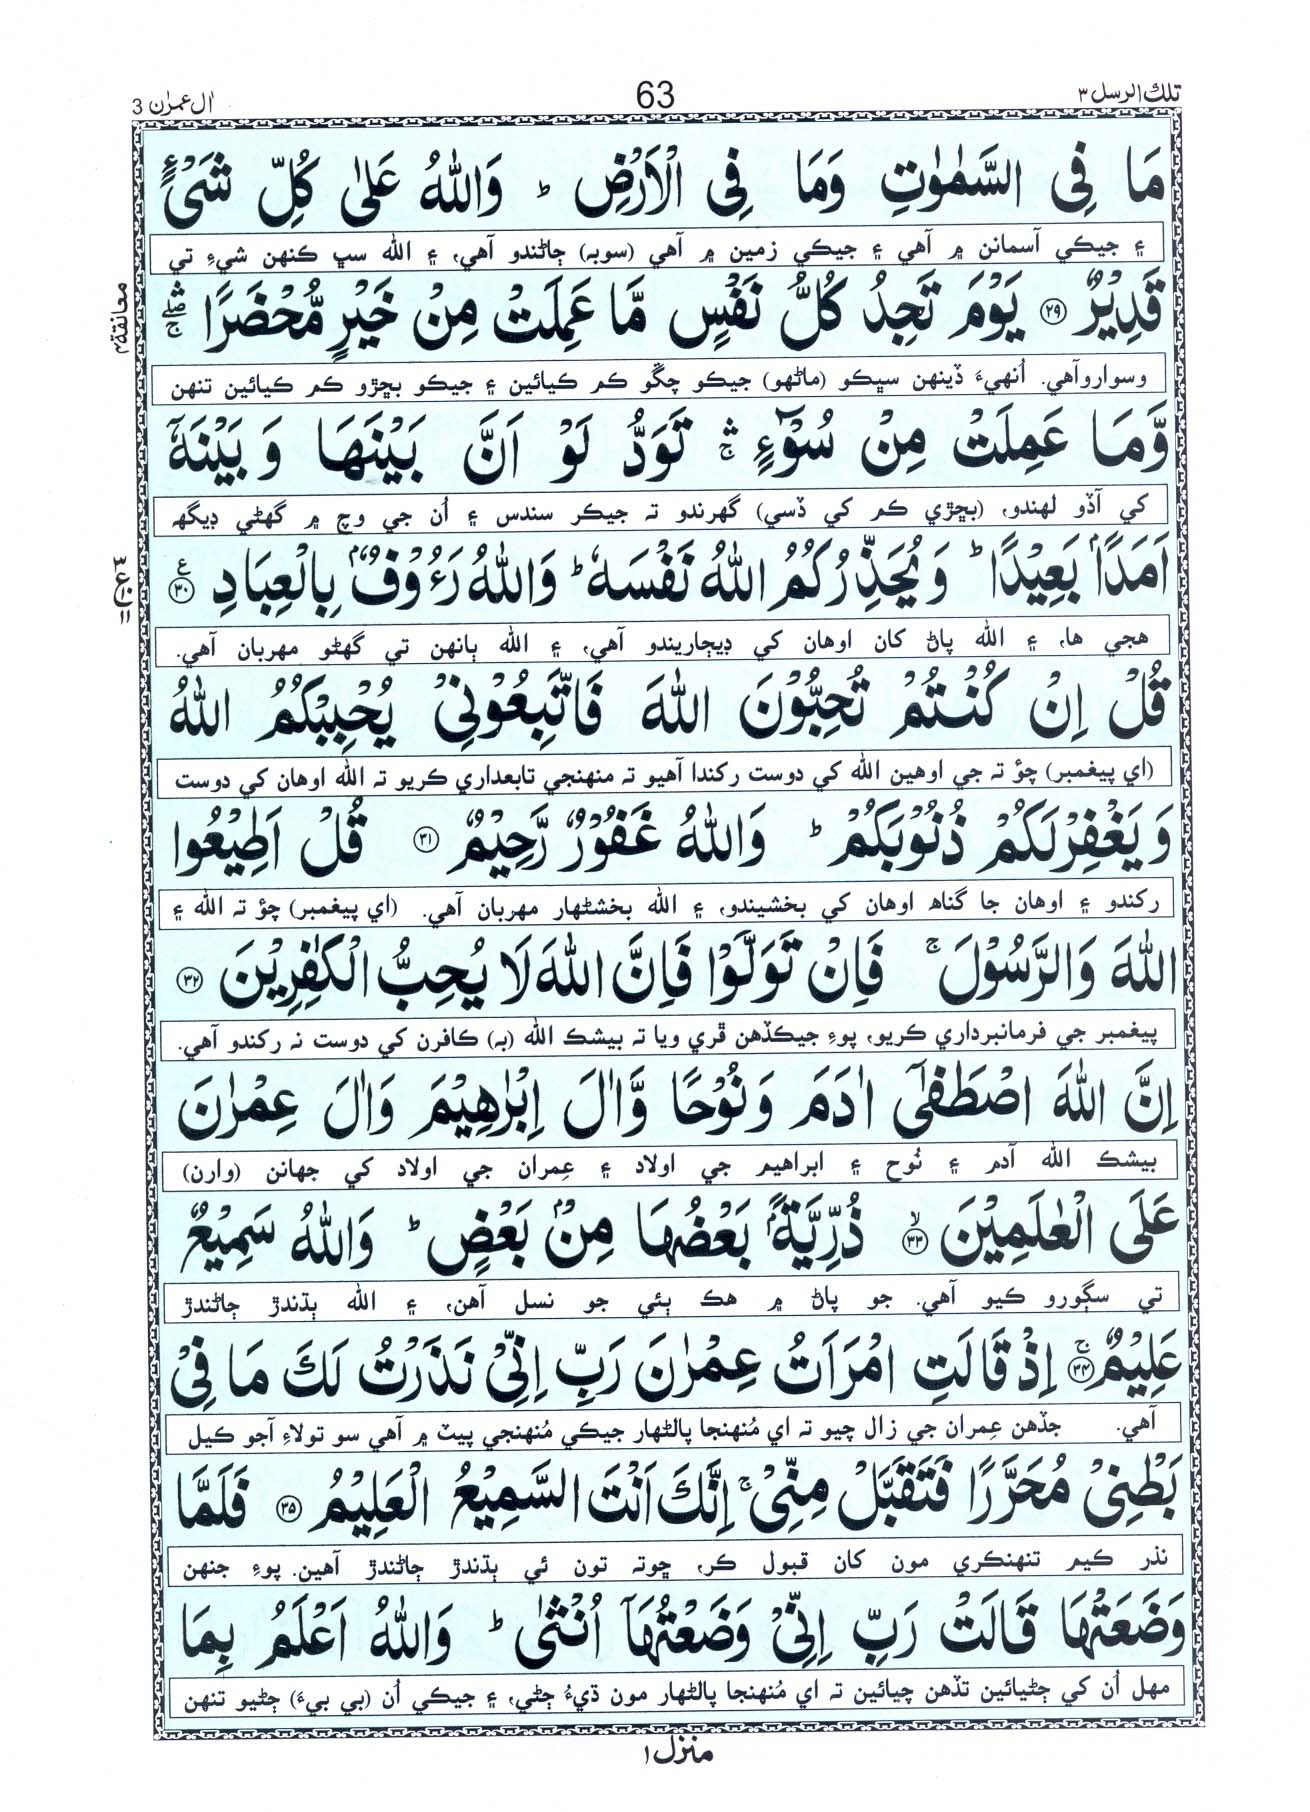 تلك الرسل ٣
63
اٰل عمرٰن 3
مَا فِى السَّمٰوٰتِ وَمَا فِى الْاَرْضِ ؕ وَاللّٰهُ عَلٰى كُلِّ شَىْءٍ
۽ جيڪي آسمانن ۾ آهي ۽ جيڪي زمين ۾ آهي (سوبہ) ڄاڻندو آهي، ۽ الله سڀ ڪنهن شيءِ تي
قَدِيْرٌ ﴿۲۹﴾ يَوْمَ تَجِدُ كُلُّ نَفْسٍ مَّا عَمِلَتْ مِنْ خَيْرٍ مُّحْضَرًا ۛۖۚ
معانقة ٣
وسوارو آهي. اُنهيءَ ڏينهن سڀڪو (ماڻهو) جيڪو چڱو ڪم ڪيائين ۽ جيڪو بڇڙو ڪم ڪيائين تنهن
وَّمَا عَمِلَتْ مِنْ سُوْٓءٍ ۛۚ تَوَدُّ لَوْ اَنَّ بَيْنَهَا وَبَيْنَهٗۤ
کي آڏو لهندو، (بڇڙي ڪم کي ڏسي) گهرندو تہ جيڪر سندس ۽ اُن جي وچ ۾ گهڻي ڊيگهہ
اَمَدًاۢ بَعِيْدًا ؕ وَيُحَذِّرُكُمُ اللّٰهُ نَفْسَهٗ ؕ وَاللّٰهُ رَءُوْفٌۢ بِالْعِبَادِ ﴿۳۰﴾ ع
هجي ها، ۽ الله پاڻ کان اوهان کي ڊيڄاريندو آهي، ۽ الله ٻانهن تي گهڻو مهربان آهي.
قُلْ اِنْ كُنْتُمْ تُحِبُّوْنَ اللّٰهَ فَاتَّبِعُوْنِىْ يُحْبِبْكُمُ اللّٰهُ
(اي پيغمبر) چؤ تہ جي اوهين الله کي دوست رکندا آهيو تہ منهنجي تابعداري ڪريو تہ الله اوهان کي دوست
وَيَغْفِرْ لَكُمْ ذُنُوْبَكُمْ ؕ وَاللّٰهُ غَفُوْرٌ رَّحِيْمٌ ﴿۳۱﴾ قُلْ اَطِيْعُوا
رکندو ۽ اوهان جا گناهہ اوهان کي بخشيندو، ۽ الله بخشڻهار مهربان آهي. (اي پيغمبر) چؤ تہ الله ۽
اللّٰهَ وَالرَّسُوْلَ ۚ فَاِنْ تَوَلَّوْا فَاِنَّ اللّٰهَ لَا يُحِبُّ الْكٰفِرِيْنَ ﴿۳۲﴾
پيغمبر جي فرمانبرداري ڪريو، پوءِ جيڪڏهن ڦري ويا تہ بيشڪ الله (بہ) ڪافرن کي دوست نہ رکندو آهي.
اِنَّ اللّٰهَ اصْطَفٰۤى اٰدَمَ وَنُوْحًا وَّاٰلَ اِبْرٰهِيْمَ وَاٰلَ عِمْرٰنَ
بيشڪ الله آدم ۽ نُوح ۽ ابراهيم جي اولاد ۽ عِمران جي اولاد کي جهانن (وارن)
عَلَى الْعٰلَمِيْنَ ﴿۳۳﴾ۙ ذُرِّيَّةًۢ بَعْضُهَا مِنْۢ بَعْضٍ ؕ وَاللّٰهُ سَمِيْعٌ
تي سڳورو ڪيو آهي. جو پاڻ ۾ هڪ ٻئي جو نسل آهن، ۽ الله ٻڌندڙ ڄاڻندڙ
عَلِيْمٌ ﴿۳۴﴾ۚ اِذْ قَالَتِ امْرَاَتُ عِمْرٰنَ رَبِّ اِنِّىْ نَذَرْتُ لَكَ مَا فِىْ
آهي. جڏهن عِمران جي زال چيو تہ اي مُنهنجا پالڻهار جيڪي مُنهنجي پيٽ ۾ آهي سو تولاءِ آجو ڪيل
بَطْنِىْ مُحَرَّرًا فَتَقَبَّلْ مِنِّىْ ۚ اِنَّكَ اَنْتَ السَّمِيْعُ الْعَلِيْمُ ﴿۳۵﴾ فَلَمَّا
نذر ڪيم تنهنڪري مون کان قبول ڪر، ڇوتہ تون ئي ٻڌندڙ ڄاڻندڙ آهين. پوءِ جنهن
وَضَعَتْهَا قَالَتْ رَبِّ اِنِّىْ وَضَعْتُهَاۤ اُنْثٰى ؕ وَاللّٰهُ اَعْلَمُ بِمَا
مهل اُن کي ڄڻيائين تڏهن چيائين تہ اي مُنهنجا پالڻهار مون ڌيءُ ڄڻي، ۽ جيڪي اُن (بي بيءَ) ڄڻيو تنهن
منزل ١